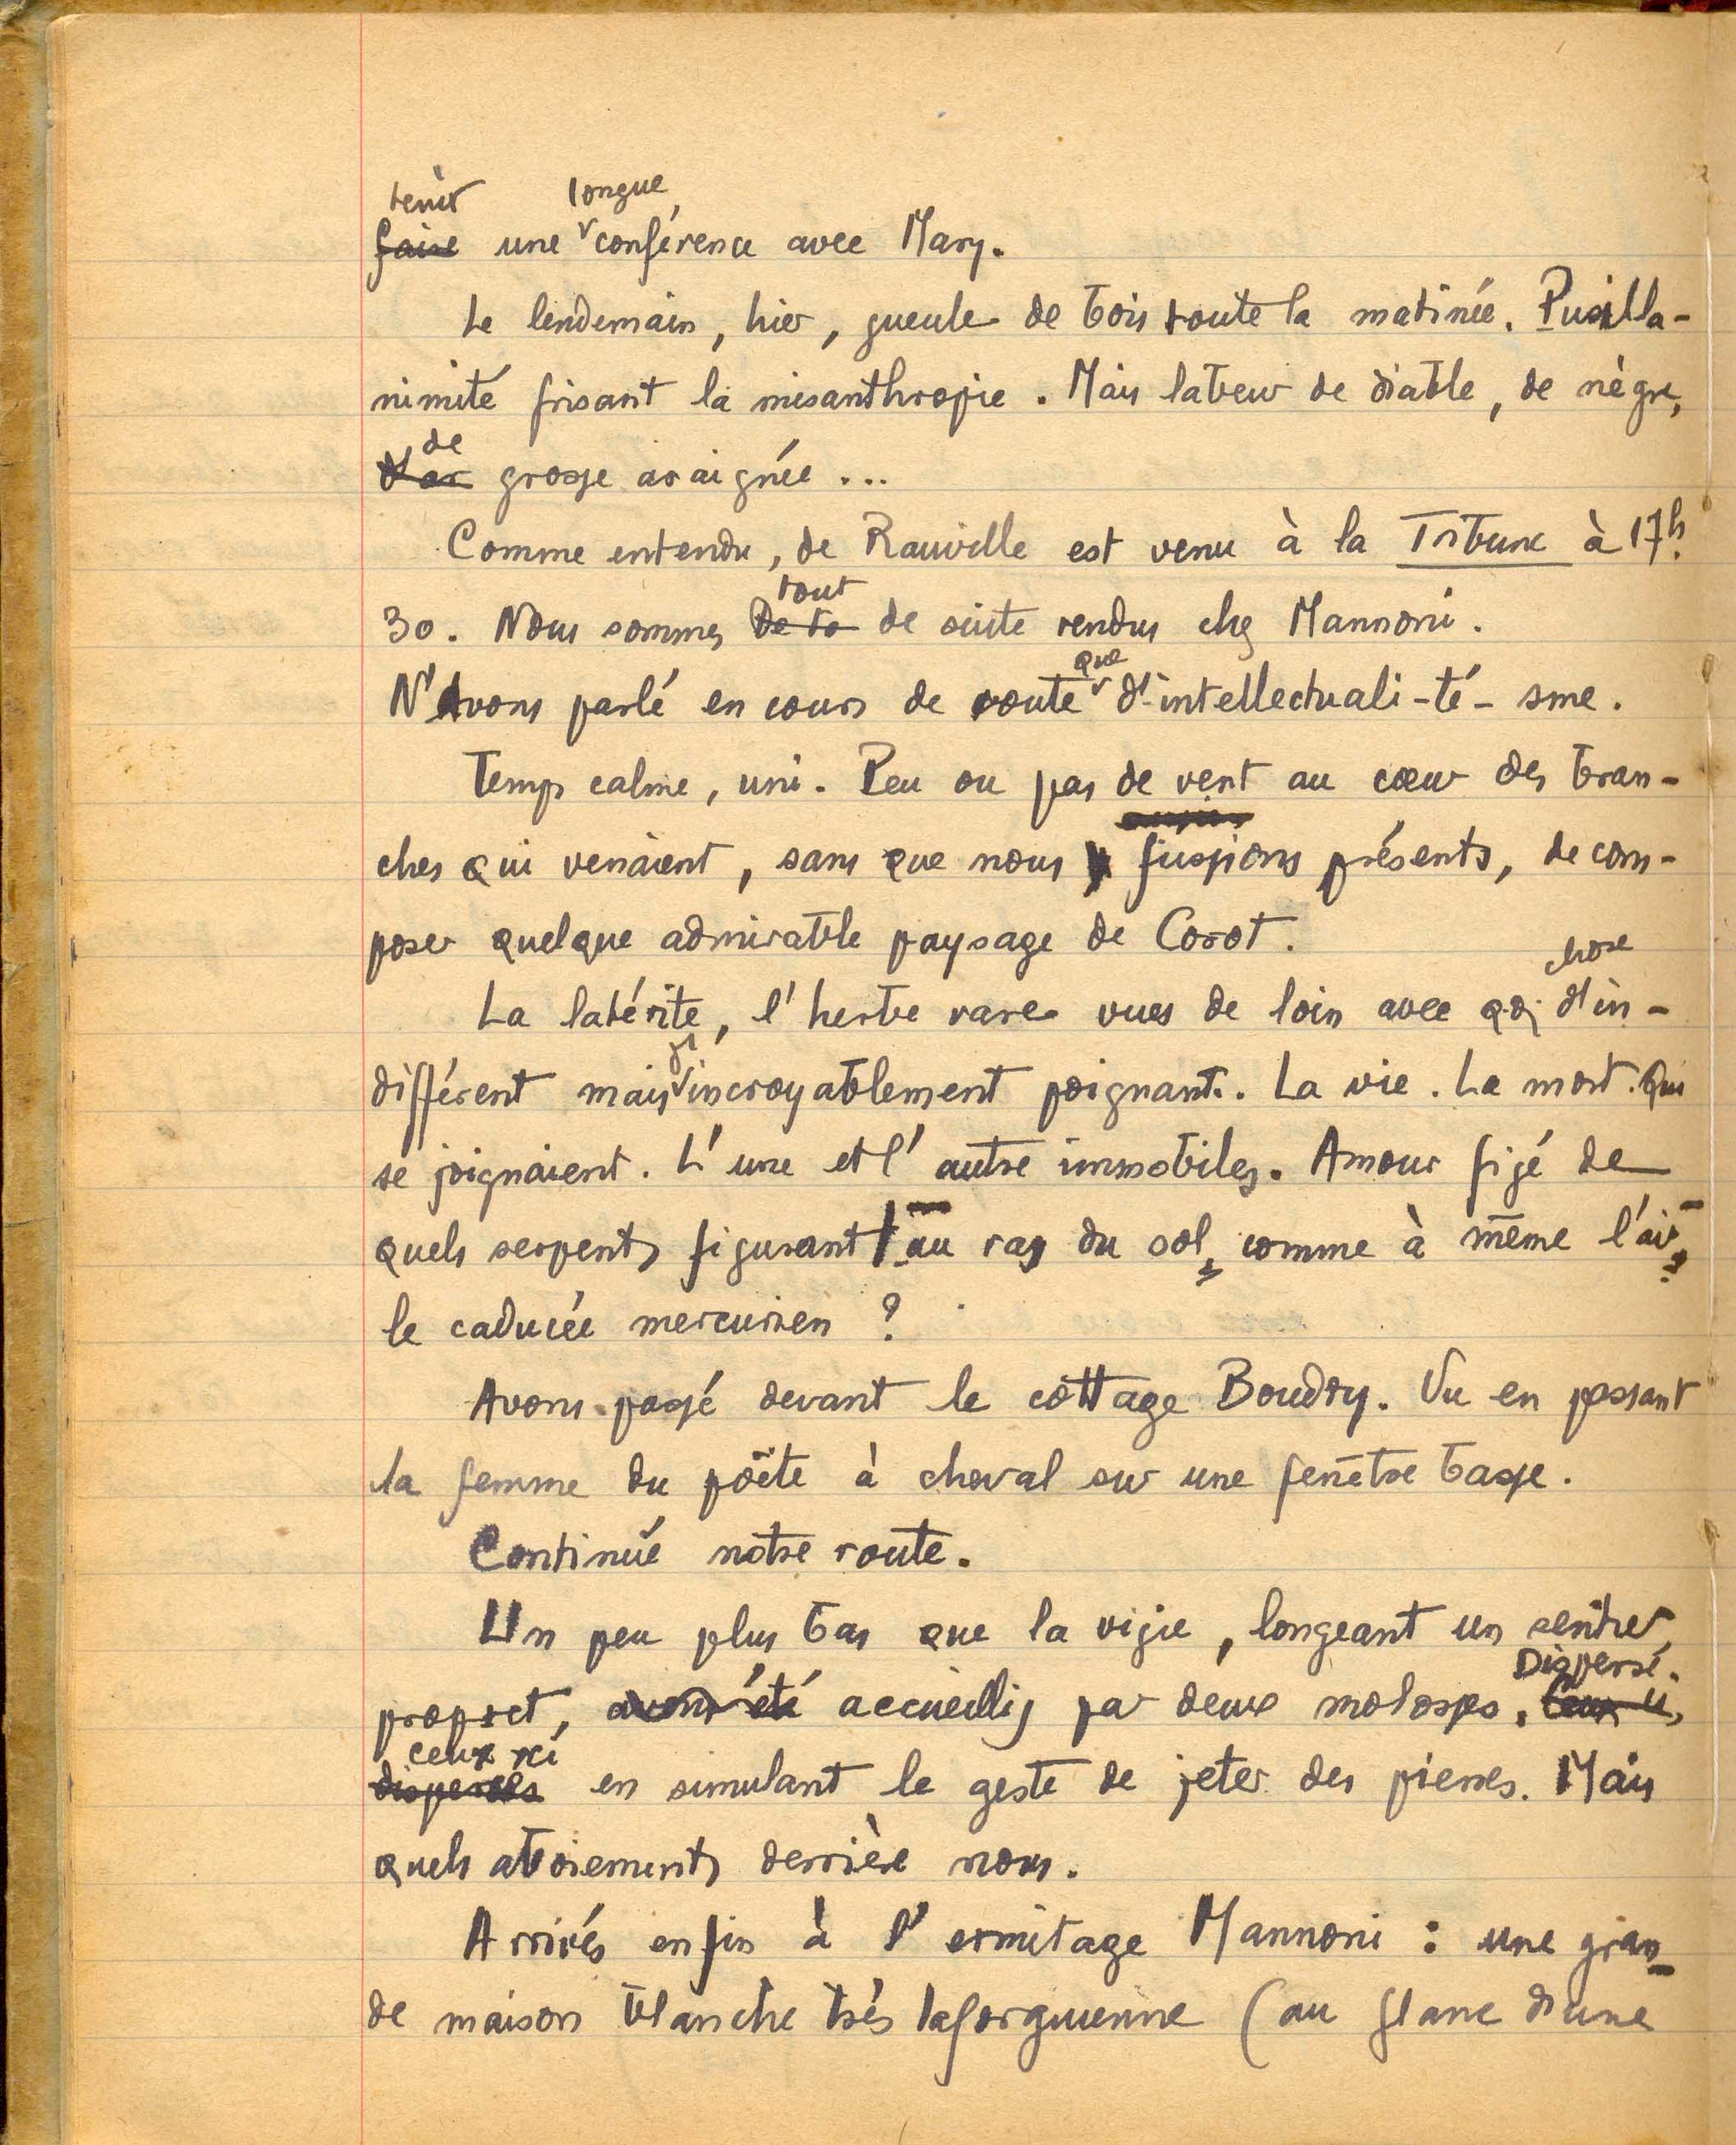 tenir longue
faire une conférence avec Mary.
Le lendemain, hier, gueule de bois toute la matinée. Pusilla-
nimité frisant la misanthropie. Mais labeur de diable, de nègre,
de
d'ar grosse araignée ...
Comme entendu, de Rauville est venu à la Tribune à 17h.
tout
30. Nous sommes de to de suite rendus chez Mannoni.
que
N'avons parlé en cours de route d'intellectuali-té-sme.
Temps calme, uni. Peu ou pas de vent au cœur des bran-
ches qui venaient, sans que nous fussions présents, de com-
poser quelque admirable paysage de Corot.
chose
La latérite, l'herbe rare vues de loin avec qq d'in-
différent mais incroyablement poignant. La vie. La mort. Qui
se joignaient. L'une et l'autre immobiles. Amour figé de
quels serpents figurant au ras du sol, comme à même l'air,
le caducée mercurien ?
Avons passé devant le cottage Boudry. Vu en passant
la femme du poëte à cheval sur une fenêtre basse.
Continué notre route.
Un peu plus bas que la vigie, longeant un sentier
Dispersé.
propret, avons été accueillis par deux molosses. Ceux-ci,
ceux-ci
dispersés en simulant le geste de jeter des pierres. Mais
quels aboiements derrière nous.
Arrivés enfin à l'ermitage Mannoni : une gran-
de maison blanche très laforguienne (au flanc d'une